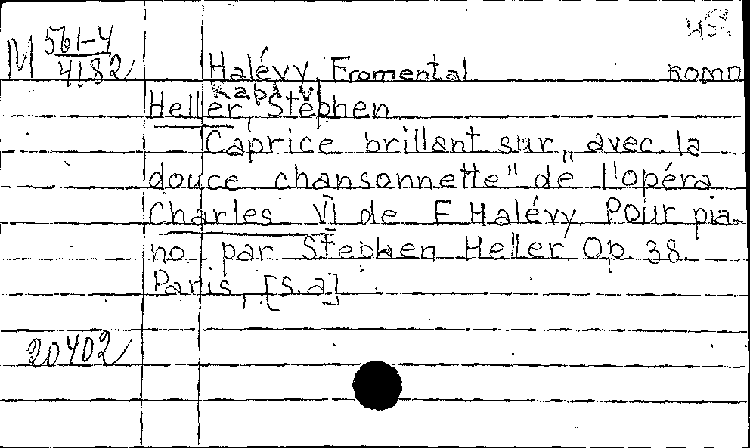 45.
M 561-4
4182
Halévy, Fromental комп
Карл VI
Heller, Stephen
Caprice brillant sur „avec la
douce chansonnette" de l'opéra
Charles VI de F Halévy Pour pia-
no par Stephen Heller Op. 38
Paris, [s.a]
20402